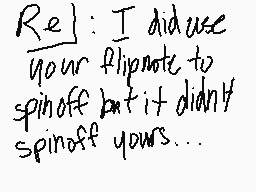 Re]: I did use
your flipnote to
spinoff but it didn't
spinoff yours...